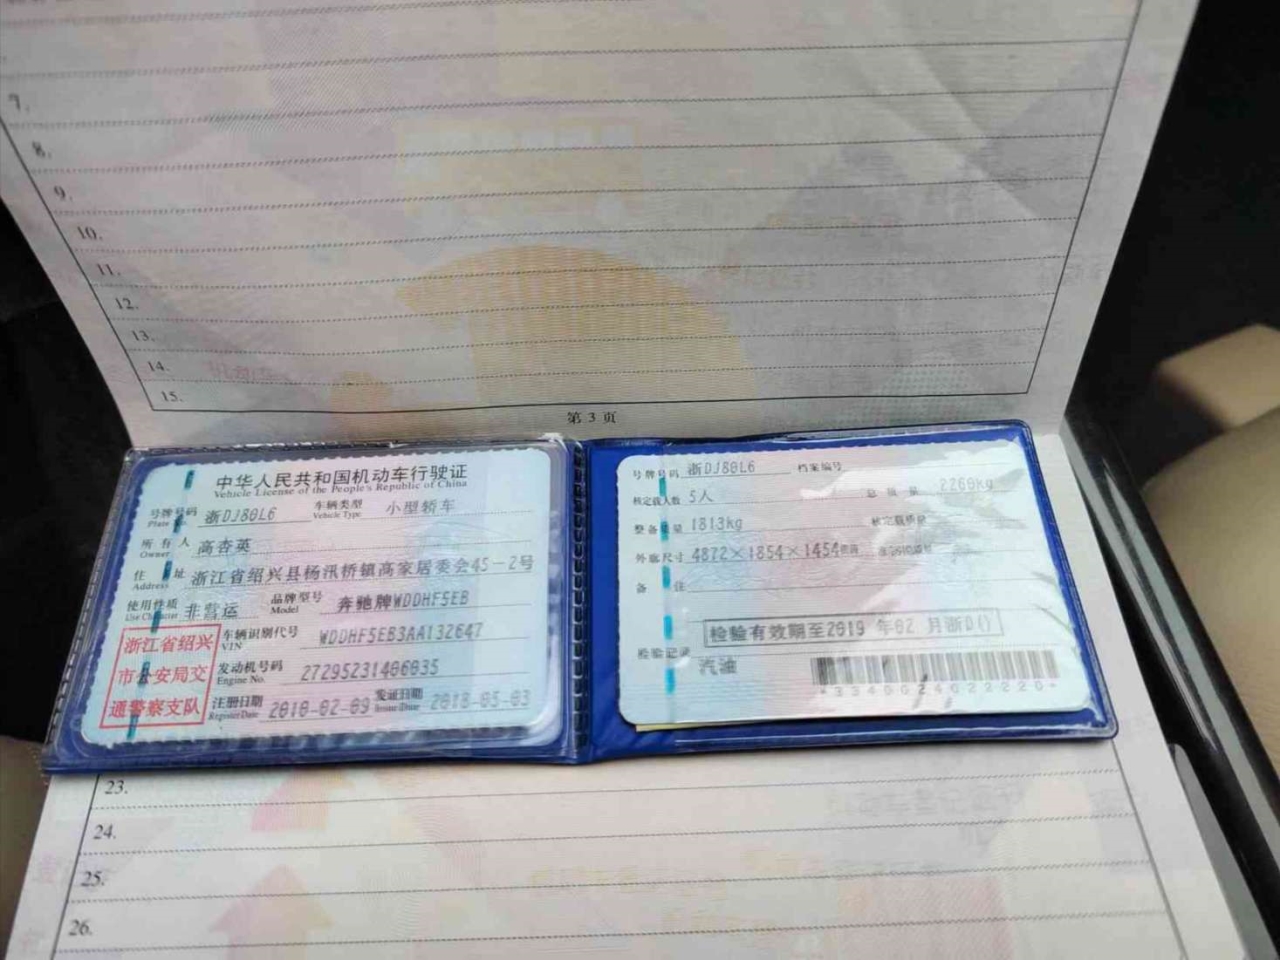 7.
8.
9.
10.
11.
12.
13.
14.
15.
第 3 页
中华人民共和国机动车行驶证
Vehicle License of the People's Republic of China
号牌号码 浙DJ80L6 车辆类型 小型轿车
Plate No. Vehicle Type
所有人 高杏英
Owner
住址 浙江省绍兴县杨汛桥镇高家居委会45-2号
Address
使用性质 非营运 品牌型号 奔驰牌WDDHF5EB
Use Character Model
浙江省绍兴
市公安局交
通警察支队
车辆识别代号 WDDHF5EB3AA132647
VIN
发动机号码 27295231406035
Engine No.
注册日期 2010-02-09 发证日期 2018-05-03
Register Date Issue Date
号牌号码 浙DJ80L6 档案编号
核定载人数 5人 总质量 2260kg
整备质量 1813kg 核定载质量
外廓尺寸 4872×1854×1454
备注
检验有效期至2019 年02 月浙D
检验记录
汽油
23.
24.
25.
26.